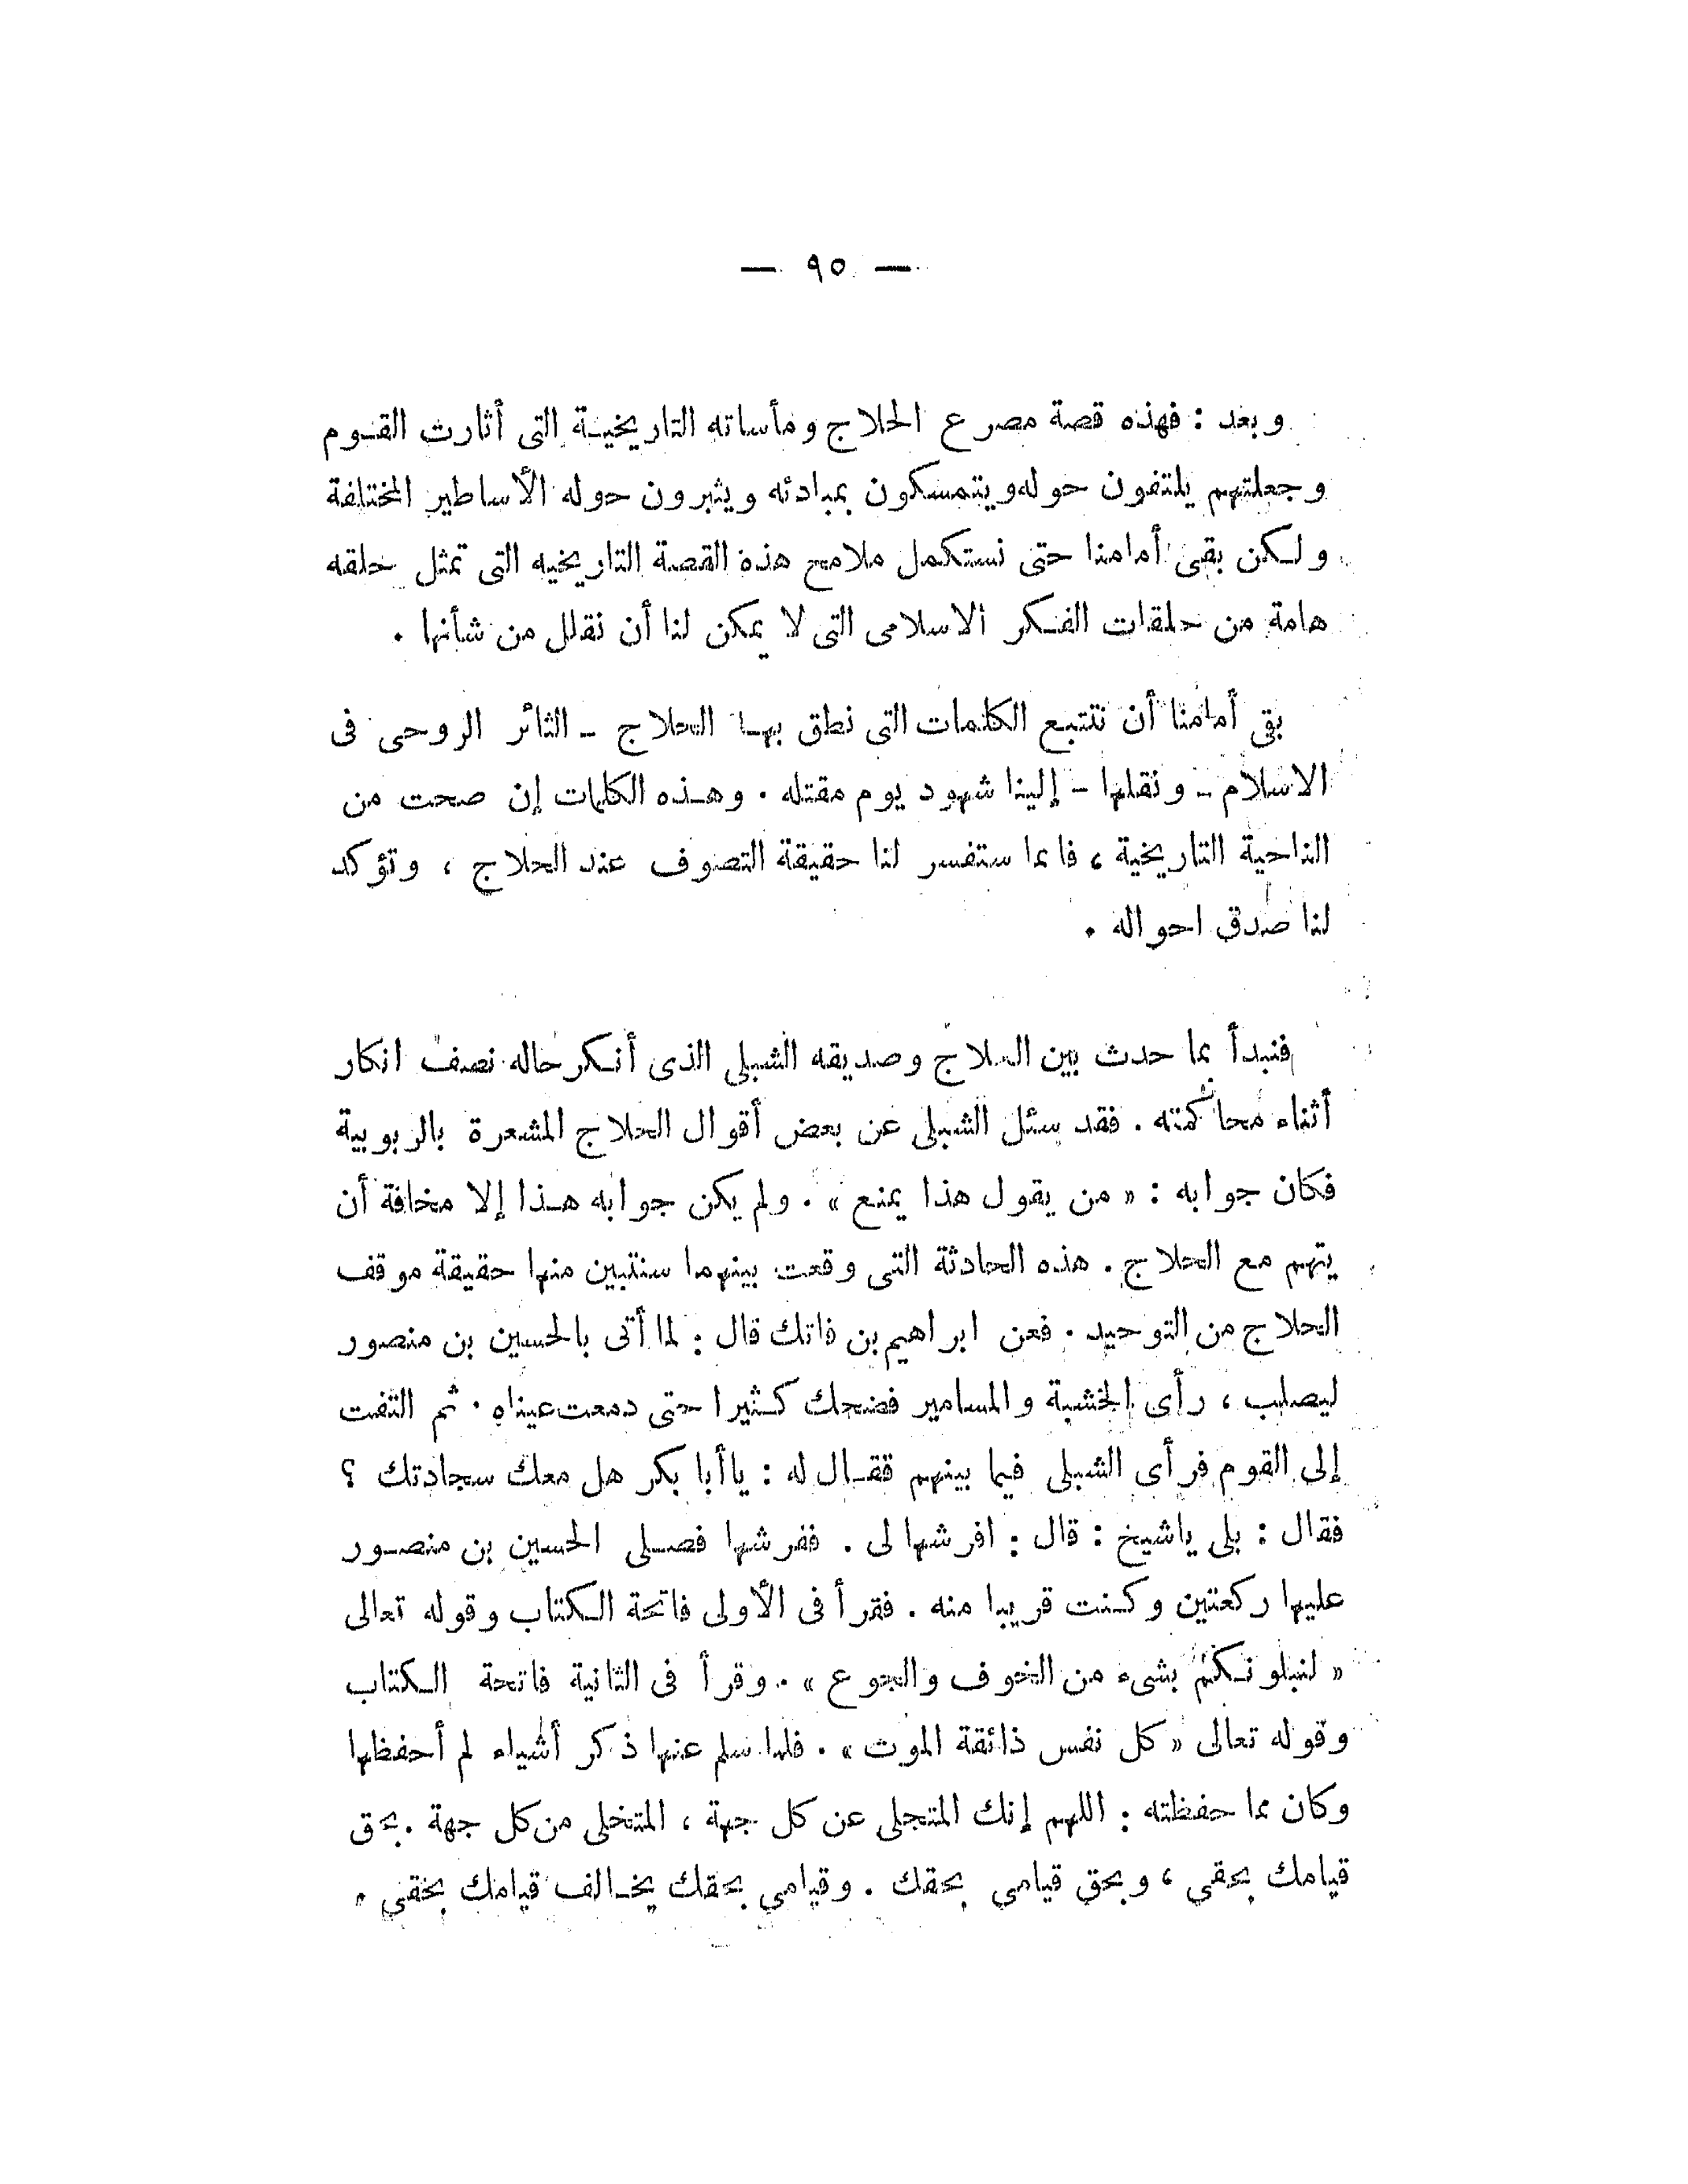 — ٩٥ —
وبعد : فهذه قصة مصرع الحلاج ومأساته التاريخية التى أثارت القوم
وجعلتهم يلتفون حوله ويتمسكون بمبادئه ويثيرون حوله الأساطير المختلفة
ولكن بقى أمامنا حتى نستكمل ملامح هذه القصة التاريخيه التى تمثل حلقه
هامة من حلقات الفكر الاسلامى التى لا يمكن لنا أن نقلل من شأنها .
بقى أمامنا أن نتتبع الكلمات التى نطق بها الحلاج - الثائر الروحى فى
الاسلام - ونقلها - إلينا شهود يوم مقتله . وهذه الكلمات إن صحت من
الناحية التاريخية ، فانما ستفسر لنا حقيقة التصوف عند الحلاج ، وتؤكد
لنا صدق احواله .
فنبدأ بما حدث بين الحلاج وصديقه الشبلى الذى أنكر حاله نصف انكار
أثناء محاكمته . فقد سئل الشبلى عن بعض أقوال الحلاج المشعرة بالربوبية
فكان جوابه : « من يقول هذا يمنع » . ولم يكن جوابه هذا إلا مخافة أن
يتهم مع الحلاج . هذه الحادثة التى وقعت بينهما سنتبين منها حقيقة موقف
الحلاج من التوحيد . فعن ابراهيم بن فاتك قال : لما أتى بالحسين بن منصور
ليصلب ، رأى الخشبة والمسامير فضحك كثيرا حتى دمعت عيناه . ثم التفت
إلى القوم فرأى الشبلى فيما بينهم فقال له : يا أبا بكر هل معك سجادتك ؟
فقال : بلى ياشيخ : قال : افرشها لى . ففرشها فصلى الحسين بن منصور
عليها ركعتين وكنت قريبا منه . فقرأ فى الأولى فاتحة الكتاب وقوله تعالى
« لنبلونكم بشىء من الخوف والجوع » . وقرأ فى الثانية فاتحة الكتاب
وقوله تعالى « كل نفس ذائقة الموت » . فلما سلم عنها ذكر أشياء لم أحفظها
وكان مما حفظته : اللهم إنك المتجلى عن كل جهة ، المتخلى من كل جهة . بحق
قيامك بحقى ، وبحق قيامى بحقك . وقيامى بحقك يخالف قيامك بحقى .